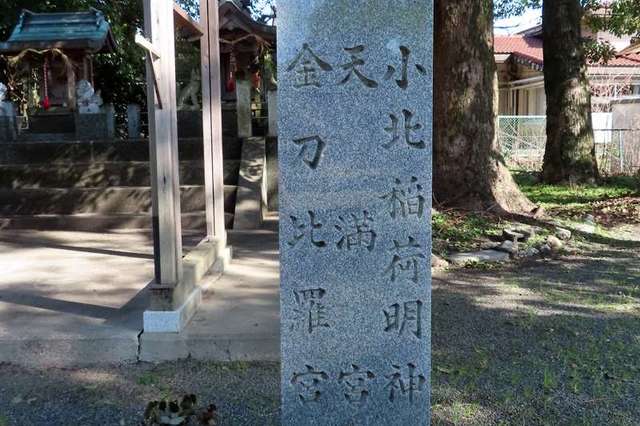 小北稲荷明神
天満宮
金刀比羅宮